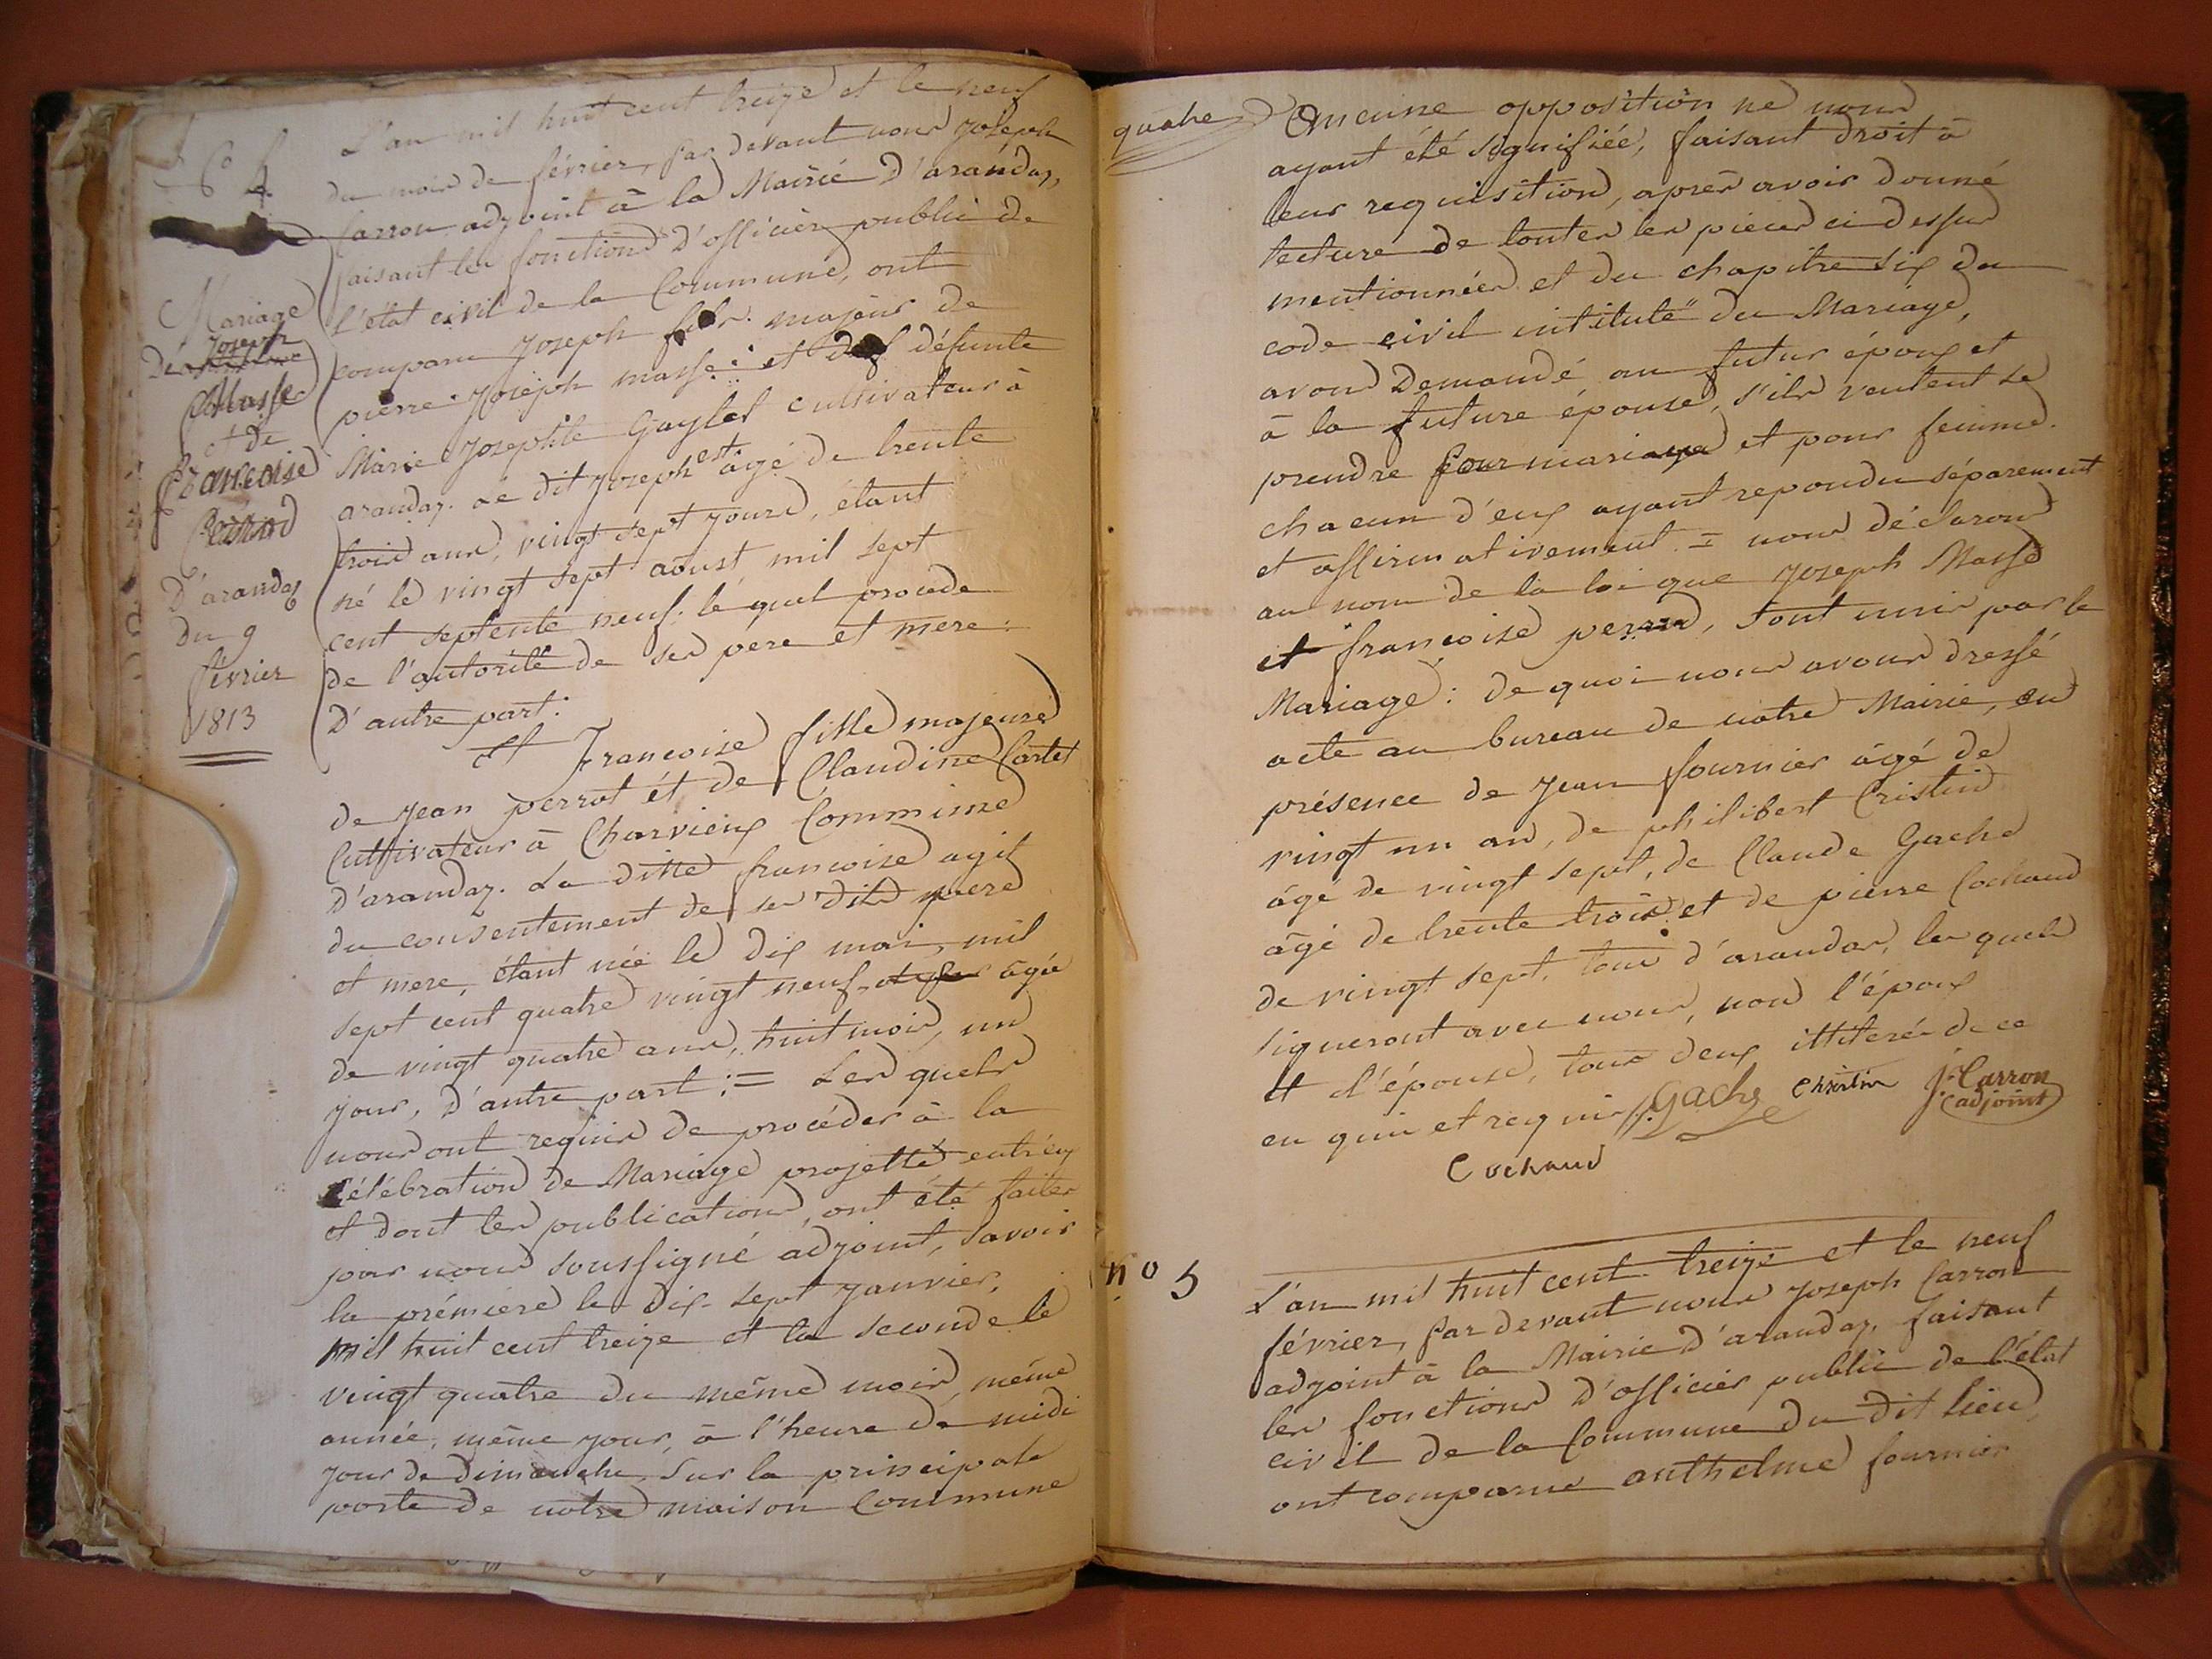 L'an mil huit cent treize et le neuf
du mois de février, par devant nous Joseph
Carron adjoint à la Mairie d'arandaz,
faisant les fonctions d'officier public de
l'état civil de la Commune, ont
comparu Joseph fils majeur de
pierre Joseph masse et de défunte
Marie Josephte Gaylet cultivateur à
arandaz. Le dit Joseph est âgé de trente
trois ans, vingt sept jours, étant
né le vingt sept aoust mil sept
cent septente neuf: le quel procede
de l'autorité de ses pere et mere:
D'autre part:
Et Francoise fille majeure
de Jean perrot ét de Claudine Cartet
Cultivateur à Charvieux Commune
D'arandaz. La ditte francoise agit
du consentement de ses dits pere
et mere, étant née le dix mai, mil
sept cent quatre vingt neuf âgée
de vingt quatre ans, huit mois, un
jour, d'autre part: = Les quels
nous ont requis de procéder à la
Célébration de Mariage projetté entr'eux
et dont les publications, ont été faites
par nous soussigné adjoint, savoir
la prémiere le dix-sept janvier,
mil huit cent treize et la seconde le
vingt quatre du même mois, même
année, même jour, à l'heure de midi
jour de dimanche, sur la principale
porte de notre maison Commune
4
Mariage
De Joseph
Masse
et de
francoise
D'arandas
du 9
février
1813
quatre
Aucune opposition ne nous
ayant été signifiée, faisant droit à
leur requisition, après avoir donné
lecture de toutes les pieces ci dessus
mentionnées et du chapitre six du
code civil intitulé du Mariage,
avons Demandé au futur époux et
à la future épouse, s'ils veulent se
prendre pour mari et pour femme.
chacun d'eux ayant repondu séparement
et affirmativement = nous déclarons
au nom de la loi que Joseph Masse
et francoise perrot, sont unis par le
Mariage: de quoi nous avons dressé
acte au bureau de notre Mairie, en
présence de Jean fournier âgé de
vingt un an, de philibert Cristin
âgé de vingt sept, de Claude Gache
âgé de trente trois et de pierre Cochaud
de vingt sept, tous d'arandas, les quels
signeront avec nous, non l'époux
et l'épouse, tous deux illiterés de ce
enquis et requis. Gache Christin J. Carron
adjoint
Cochaud
n° 5
L'an mil huit cent treize et le neuf
février, par devant nous Joseph Carron
adjoint à la Mairie d'arandaz, faisant
les fonctions d'officier public de l'état
civil de la Commune du dit lieu,
ont comparu anthelme fournier